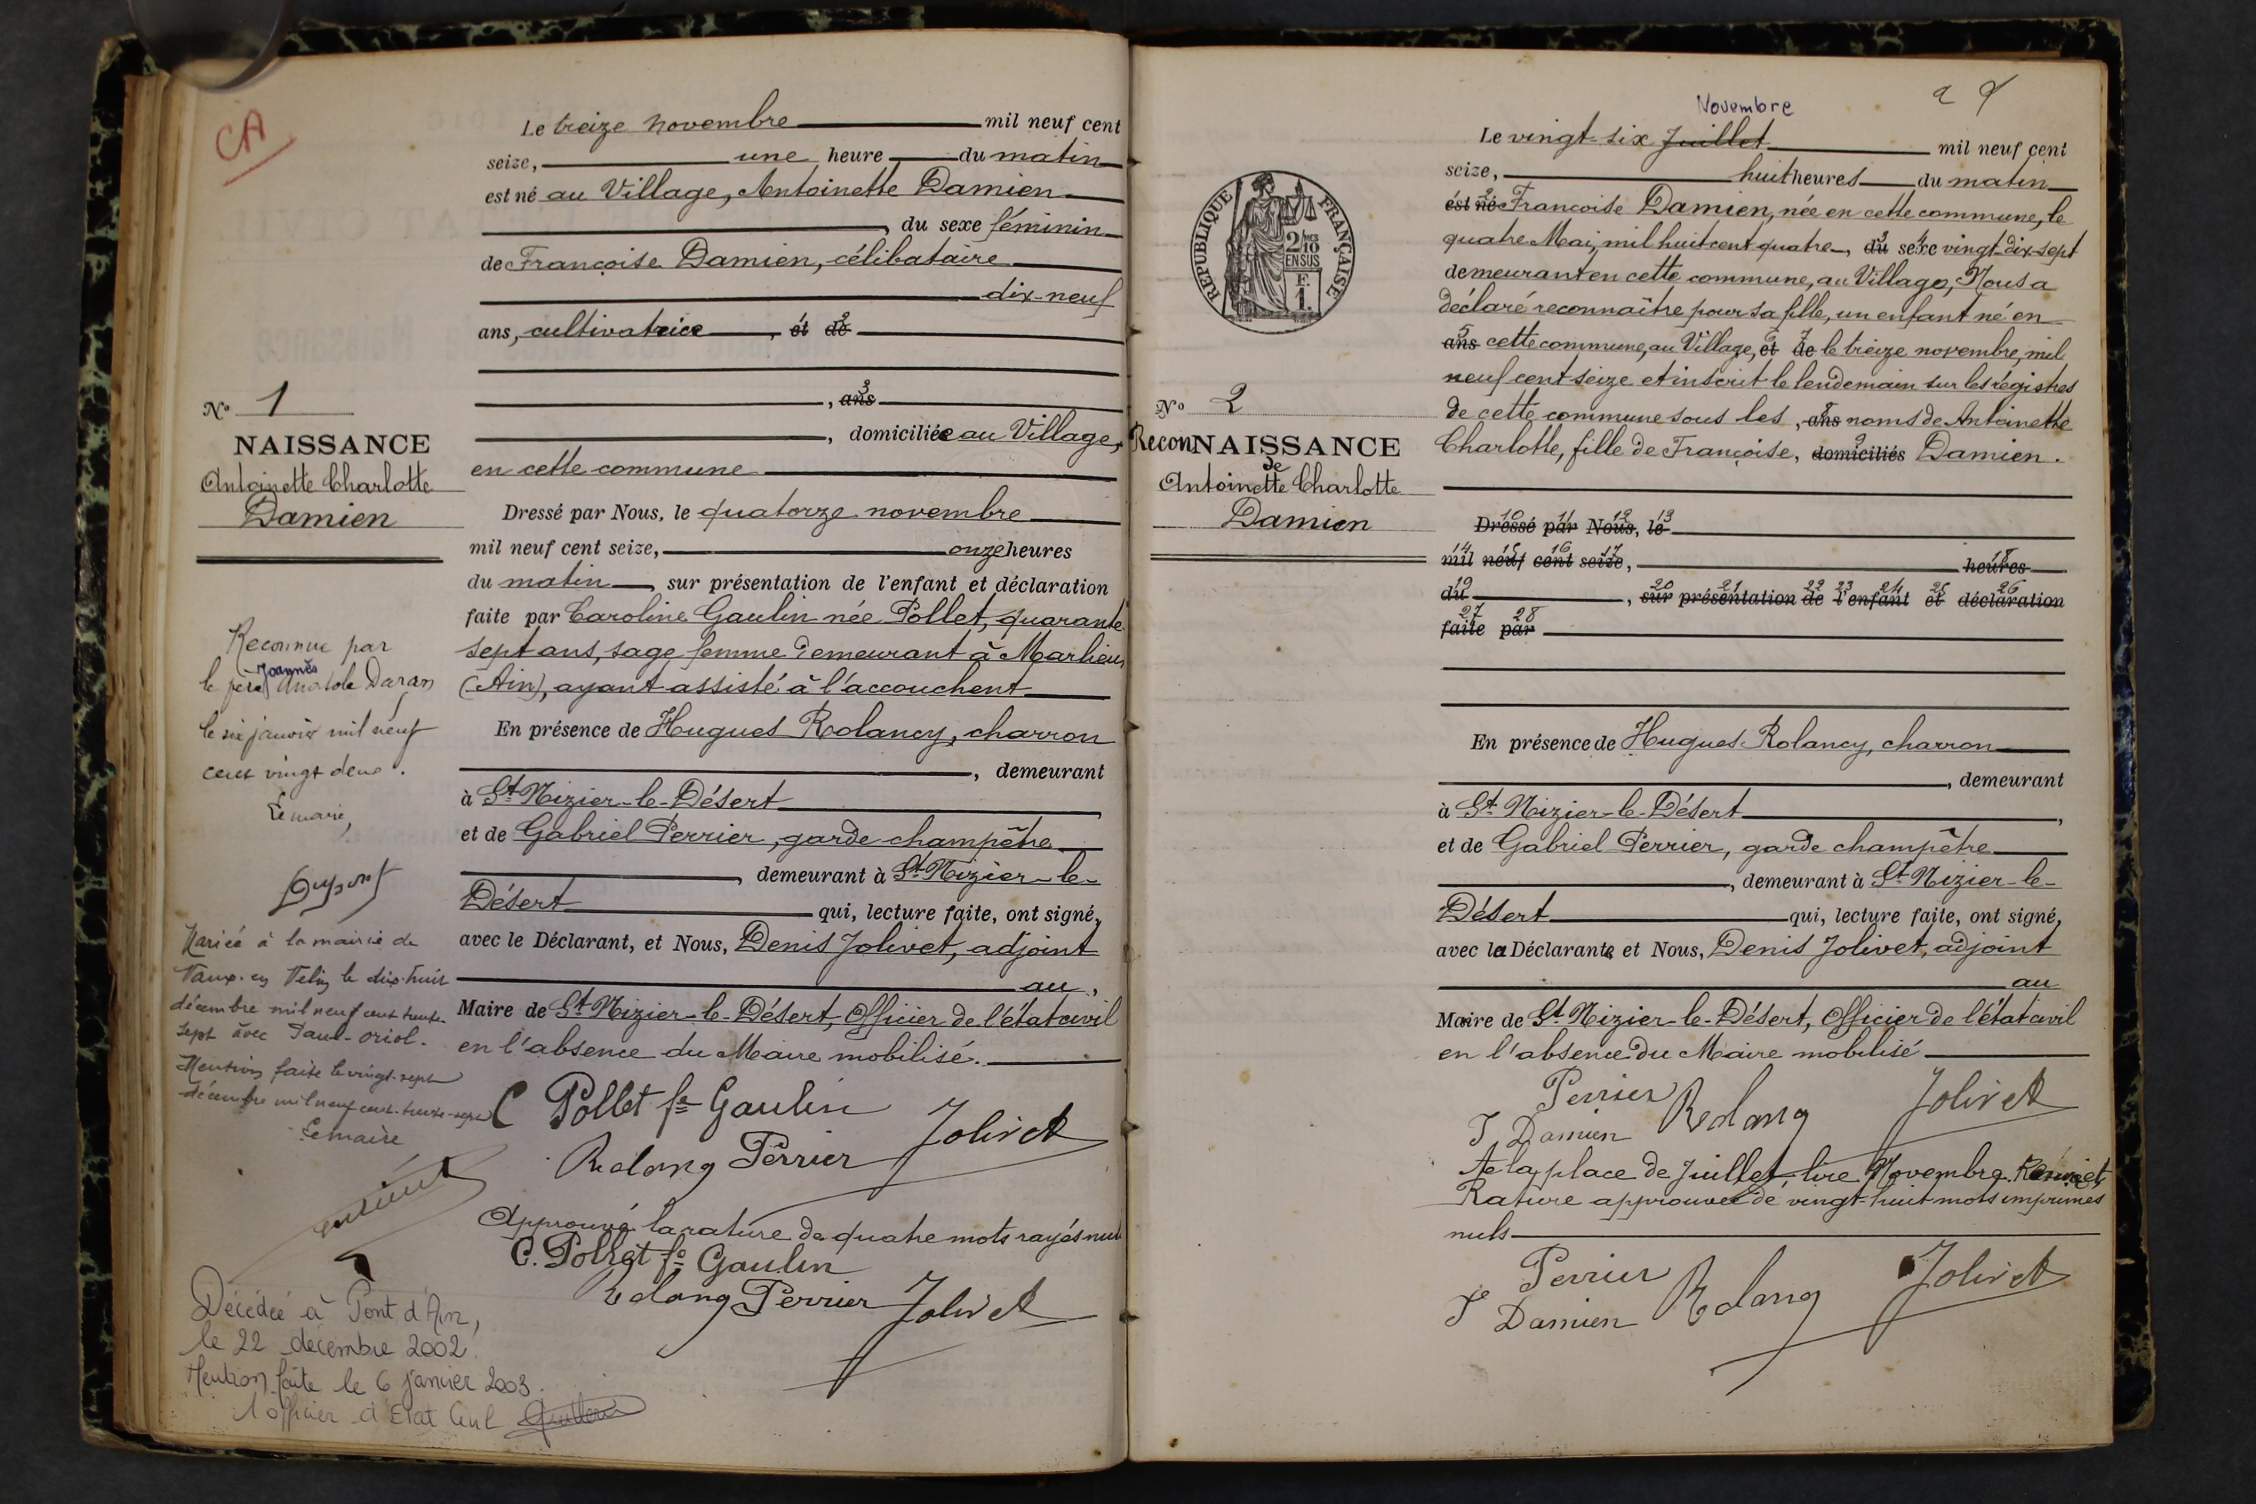 CA
Le treize novembre mil neuf cent
seize, une heure du matin
est né au Village, Antoinette Damien
, du sexe féminin
de Françoise Damien, célibataire
dix-neuf
ans, cultivatrice, et 2 de
3 ans
, domiciliée au Village,
en cette commune
Dressé par Nous, le quatorze novembre
mil neuf cent seize, onze heures
du matin, sur présentation de l'enfant et déclaration
faite par Caroline Gaulin née Pollet, quarante
sept ans, sage femme demeurant à Marlieux
(Ain), ayant assisté à l'accouchent
En présence de Hugues Rolancy, charron
, demeurant
à St Nizier-le-Désert
et de Gabriel Perrier, garde champêtre
, demeurant à St Nizier-le-
Désert qui, lecture faite, ont signé,
avec le Déclarant, et Nous, Denis Jolivet, adjoint
au,
Maire de St Nizier-le-Désert, Officier de l'état civil
en l'absence du Maire mobilisé.
C Pollet fe Gaulin
Rolancy Perrier Jolivet
Approuvé la rature de quatre mots rayés nuls
C. Pollet fe Gaulin
Rolancy Perrier Jolivet
No 1
NAISSANCE
Antoinette Charlotte
Damien
Reconnue par
Joannès
le père Anatole Daran
le six janvier mil neuf
cent vingt deux.
Le maire,
Mariée à la mairie de
Vaux-en Velin le dix-huit
décembre mil neuf cent trente-
sept avec Paul-Oriol.
Mention faite le vingt-sept
décembre mil neuf cent-trente-sept
Le maire
Décédée à Pont d'Ain,
le 22 décembre 2002.
Mention faite le 6 janvier 2003.
l'officier d'Etat Civil
Novembre
Le vingt-six Juillet mil neuf cent
seize, huit heures du matin
est né 2 Francoise Damien, née en cette commune, le
quatre Mai, mil huit cent quatre, 3 du 4 sexe vingt-dix-sept
demeurant en cette commune, au Village, Nous a
déclaré reconnaître pour sa fille, un enfant né en
5 ans cette commune, au Village, 6 et 7 de le treize novembre, mil
neuf cent seize et inscrit le lendemain sur les régistres
de cette commune sous les, 8 ans noms de Antoinette
Charlotte, fille de Françoise, 9 domiciliés Damien.
10 Dressé 11 par 12 Nous, 13 le
14 mil 15 neuf 16 cent 17 seize, 18 heures
19 du, 20 sur 21 présentation 22 de 23 l' 24 enfant 25 et 26 déclaration
27 faite 28 par
En présence de Hugues Rolancy, charron
, demeurant
à St Nizier-le-Désert,
et de Gabriel Perrier, garde champêtre
, demeurant à St Nizier-le-
Désert qui, lecture faite, ont signé,
avec la Déclarante et Nous, Denis Jolivet, adjoint
au
Maire de St Nizier-le-Désert, Officier de l'état civil
en l'absence du Maire mobilisé
Perrier
Damien Rolancy Jolivet
A la place de Juillet, lire Novembre.
Rature approuvée de vingt-huit mots imprimés
nuls
Perrier Jolivet
Damien Rolancy
RÉPUBLIQUE FRANÇAISE
2/10
EN SUS
F.
1.
No 2
ReconNAISSANCE
de
Antoinette Charlotte
Damien